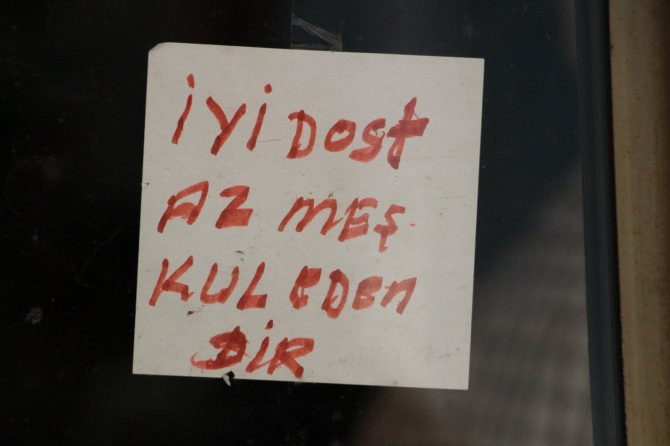 iyi DOST
AZ MEŞ
KUL EDEN
DİR